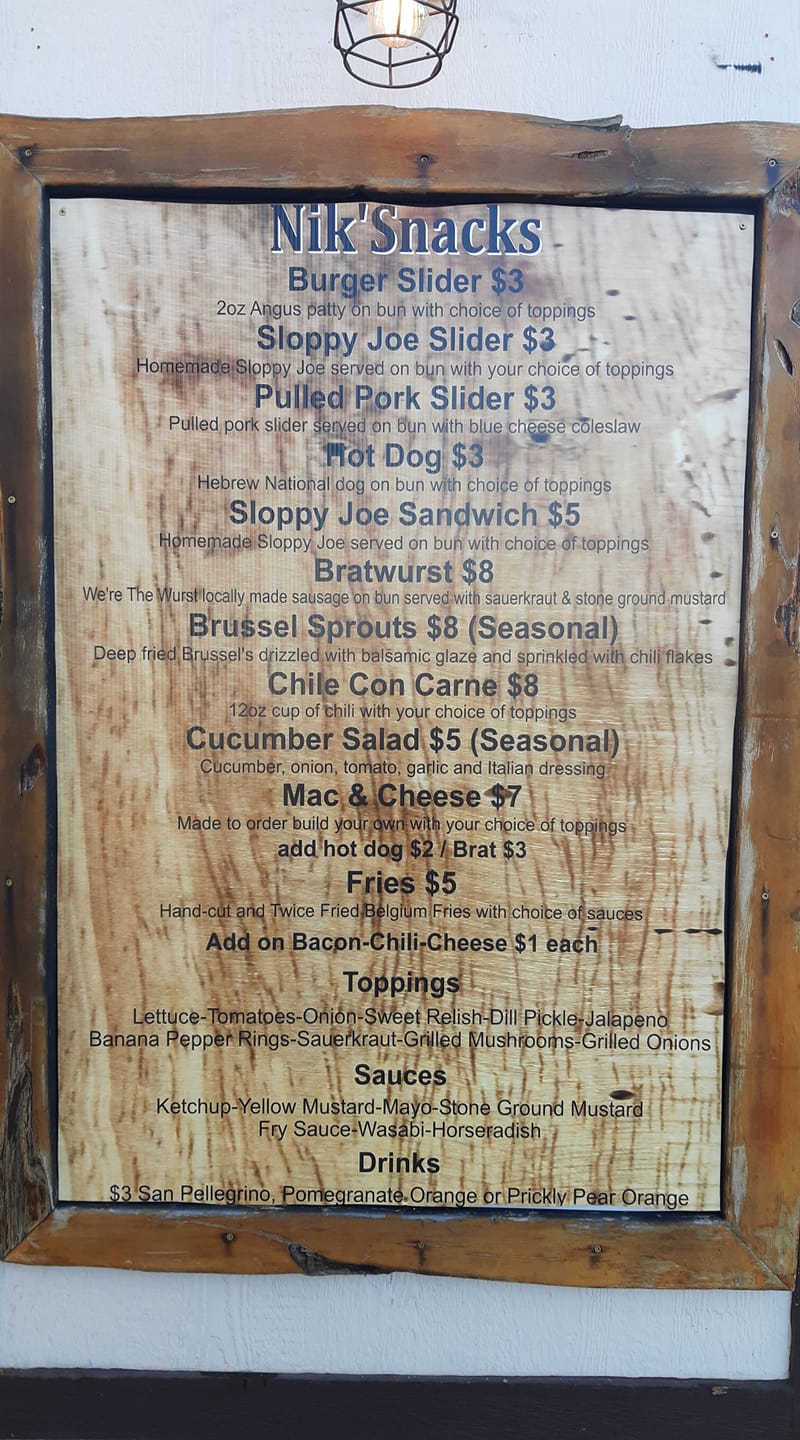 Nik'Snacks
Burger Slider $3
2oz Angus patty on bun with choice of toppings
Sloppy Joe Slider $3
Homemade Sloppy Joe served on bun with your choice of toppings
Pulled Pork Slider $3
Pulled pork slider served on bun with blue cheese coleslaw
Hot Dog $3
Hebrew National dog on bun with choice of toppings
Sloppy Joe Sandwich $5
Homemade Sloppy Joe served on bun with choice of toppings
Bratwurst $8
We're The Wurst locally made sausage on bun served with sauerkraut & stone ground mustard
Brussel Sprouts $8 (Seasonal)
Deep fried Brussel's drizzled with balsamic glaze and sprinkled with chili flakes
Chile Con Carne $8
12oz cup of chili with your choice of toppings
Cucumber Salad $5 (Seasonal)
Cucumber, onion, tomato, garlic and Italian dressing
Mac & Cheese $7
Made to order build your own with your choice of toppings
add hot dog $2 / Brat $3
Fries $5
Hand-cut and Twice Fried Belgium Fries with choice of sauces
Add on Bacon-Chili-Cheese $1 each
Toppings
Lettuce-Tomatoes-Onion-Sweet Relish-Dill Pickle-Jalapeno
Banana Pepper Rings-Sauerkraut-Grilled Mushrooms-Grilled Onions
Sauces
Ketchup-Yellow Mustard-Mayo-Stone Ground Mustard
Fry Sauce-Wasabi-Horseradish
Drinks
$3 San Pellegrino, Pomegranate Orange or Prickly Pear Orange